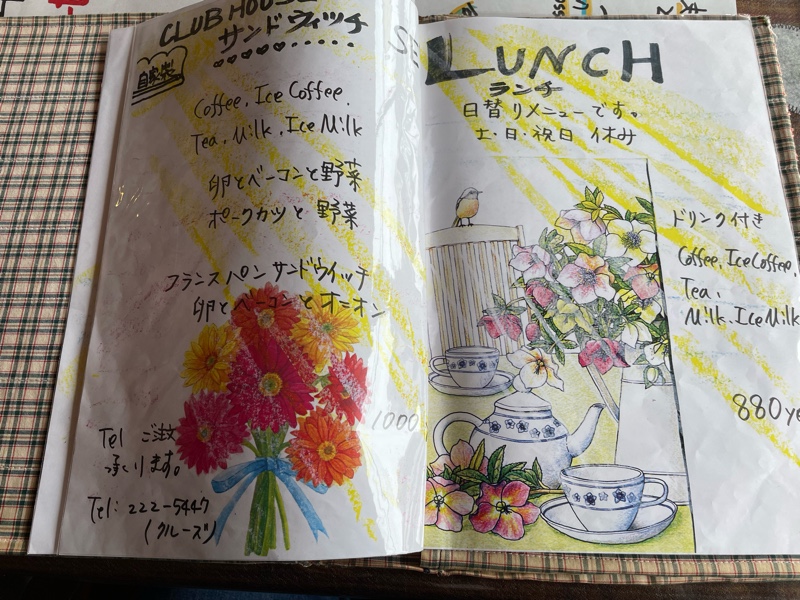 CLUB HOUSE
サンドウィッチ
自家製
Coffee. Ice Coffee.
Tea. Milk. Ice Milk
卵とベーコンと野菜
ポークカツと 野菜
フランスパン サンドウイッチ
卵とベーコンとオニオン
1000
Tel ご注文
承ります。
Tel: 222-5447
(クルーズ)
SE
LUNCH
ランチ
日替りメニューです。
土・日・祝日 休み
ドリンク付き
Coffee. Ice Coffee.
Tea.
Milk. Ice Milk
880ye